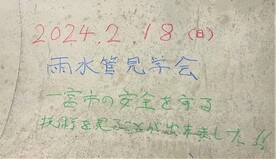 2024.2 18(日)
雨水管見学会
一宮市の安全を守る
技術を見ることが出来ました!!